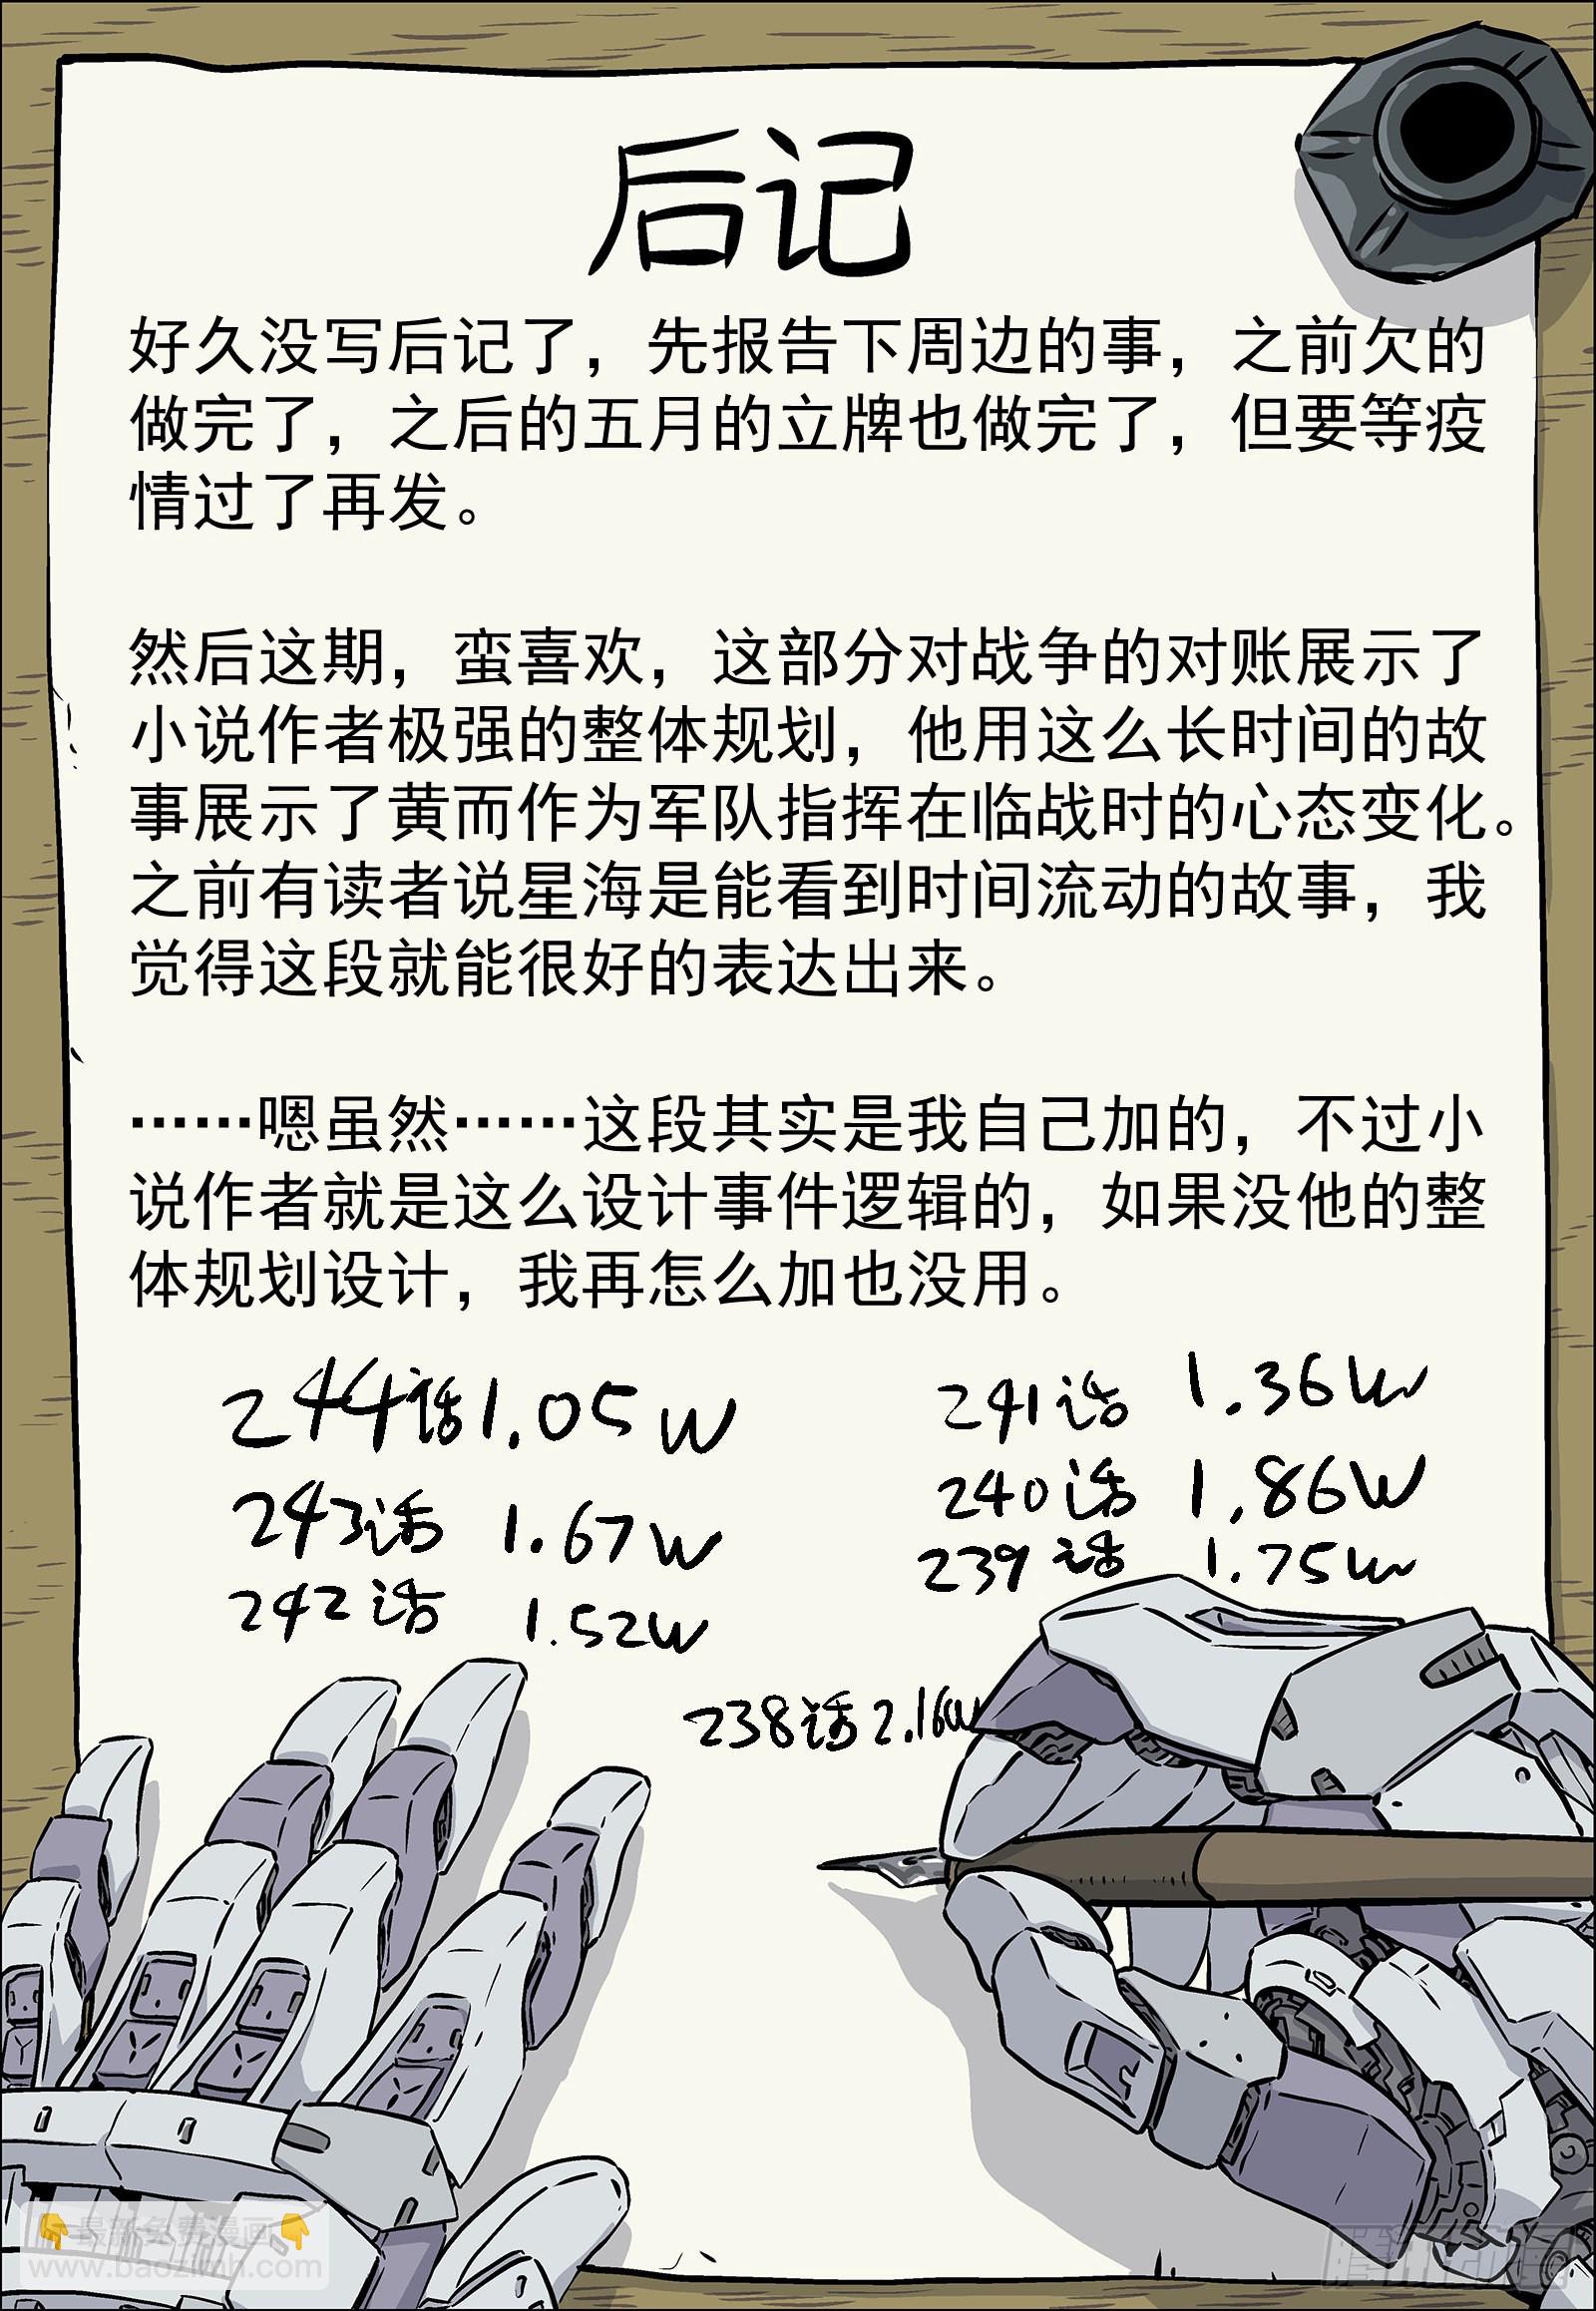 后记
好久没写后记了，先报告下周边的事，之前欠的
做完了，之后的五月的立牌也做完了，但要等疫
情过了再发。
然后这期，蛮喜欢，这部分对战争的对账展示了
小说作者极强的整体规划，他用这么长时间的故
事展示了黄而作为军队指挥在临战时的心态变化。
之前有读者说星海是能看到时间流动的故事，我
觉得这段就能很好的表达出来。
……嗯虽然……这段其实是我自己加的，不过小
说作者就是这么设计事件逻辑的，如果没他的整
体规划设计，我再怎么加也没用。
244话1.05W
243话 1.67W
242话 1.52W
241话 1.36W
240话 1.86W
239话 1.75W
238话 2.16W
👇最新免费漫画👇
www.baozimh.com
腾讯动漫